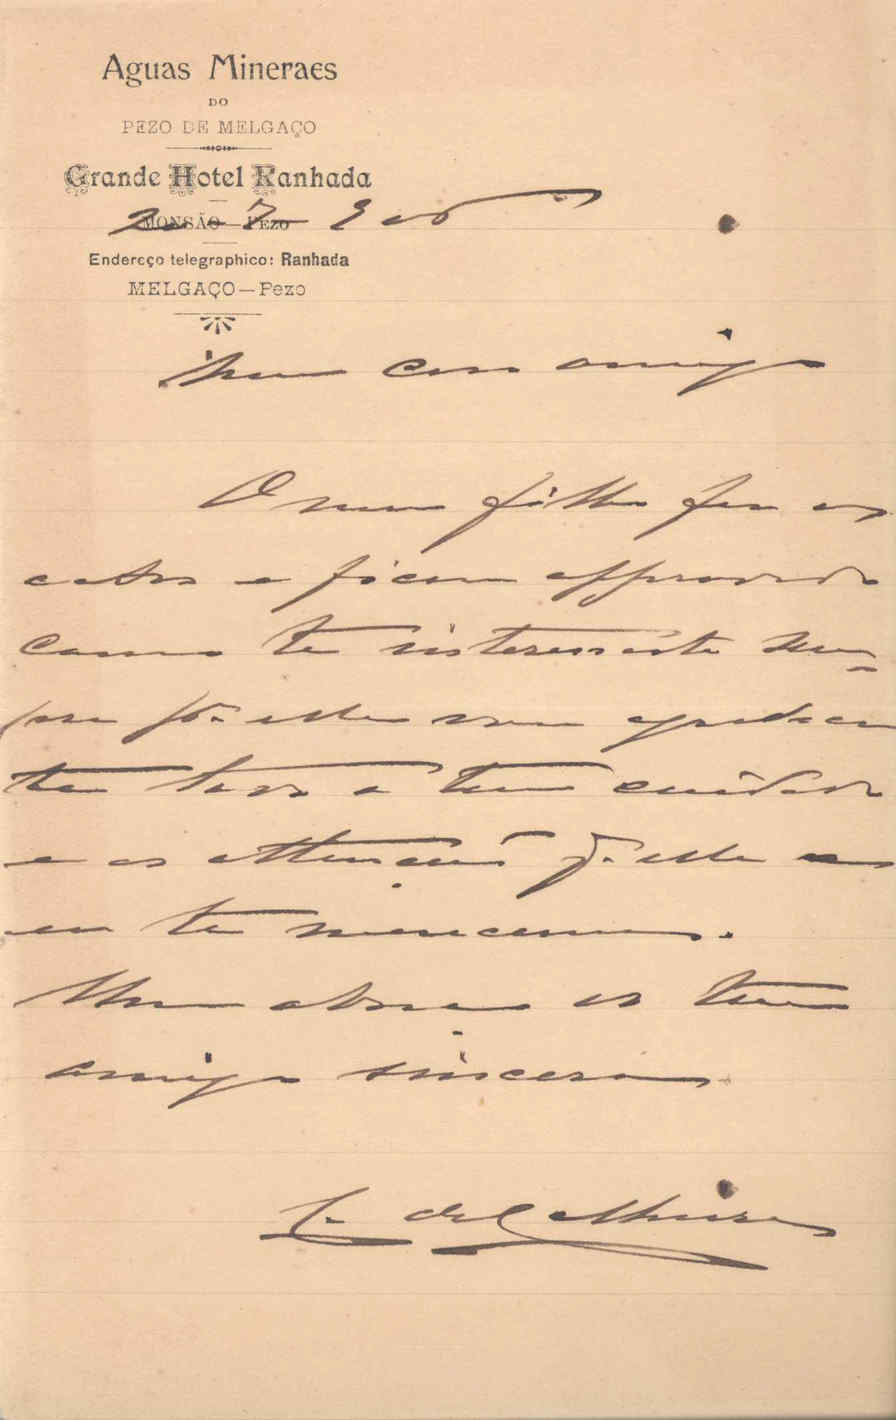 Aguas Mineraes
DO
PEZO DE MELGAÇO
Grande Hotel Ranhada
MONSÃO—PEZO
Endereço telegraphico: Ranhada
MELGAÇO—Pezo
Meu caro amigo
O meu filho fez os
actos e ficou approvado
como te interessaste
por elle venho agradecer
te todo o teu cuidado
e as attenções q. elle e
eu te merecemos.
Um abraço do teu
amigo sincero